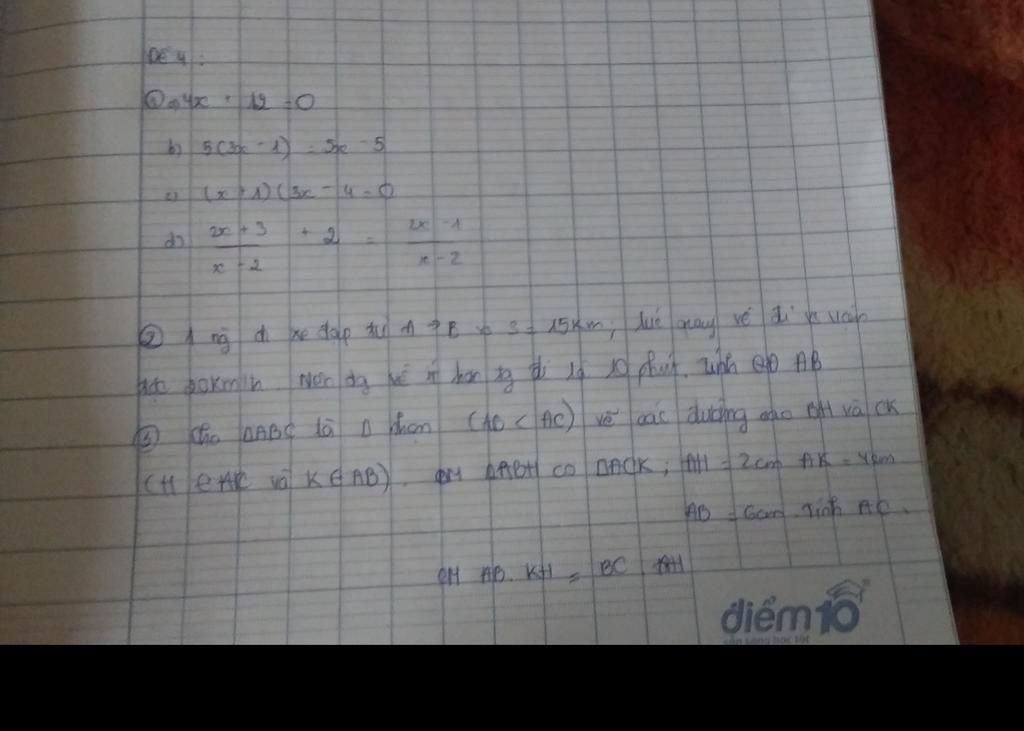 Đề 4 :
① a, 4x + 12 = 0
b) 5(3x - 1) = 3x - 5
c) (x + 1)(3x - 4 = 0
d) (2x + 3)/(x - 2) + 2 = (2x - 1)/(x - 2)
② 1 ng đi xe đạp từ A → B 15km, lúc quay về đi vs vận
20km/h Nên tg về ít hơn tg đi là 10 phút. Tính QĐ AB
③ Cho ΔABC là Δ nhọn (AB < AC) vẽ các đường cao BH và CK
(H ∈ AC và K ∈ AB). CM ΔABH ∽ ΔACK ; AH = 2cm AK = 4cm
AB = 6cm . Tính AC .
CM AB . KH = BC . AH
điểm 10